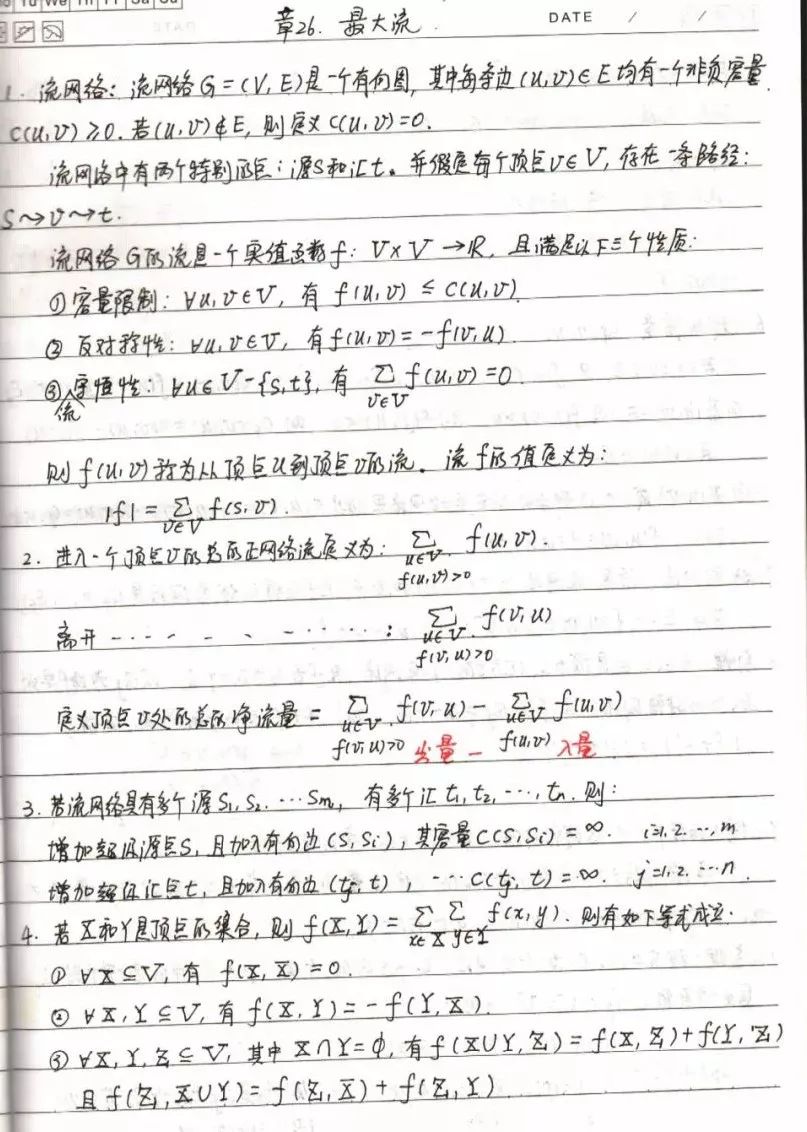 Mo Tu We Th Fr Sa Su
章26. 最大流. DATE / /
1. 流网络: 流网络 G=(V, E)是一个有向图, 其中每条边(u,v)∈E均有一个非负容量
C(u,v)≥0. 若(u,v)∉E, 则定义 C(u,v)=0.
流网络中有两个特别顶点: 源S和汇t。并假定每个顶点v∈V, 存在一条路径:
S⤳v⤳t.
流网络G的流是一个实值函数 f: V×V→R, 且满足以下三个性质:
① 容量限制: ∀u,v∈V, 有 f(u,v) ≤ C(u,v)
② 反对称性: ∀u,v∈V, 有 f(u,v)=-f(v,u)
③ 流守恒性: ∀u∈V-{s,t}, 有 ∑_{v∈V} f(u,v)=0.
则 f(u,v)称为从顶点u到顶点v的流。流f的值定义为:
|f| = ∑_{v∈V} f(s,v).
2. 进入一个顶点v的总的正网络流定义为: ∑_{u∈V, f(u,v)>0} f(u,v).
离开 ············: ∑_{u∈V, f(v,u)>0} f(v,u)
定义顶点v处的总的净流量 = ∑_{u∈V, f(v,u)>0} f(v,u) - ∑_{u∈V, f(u,v)} f(u,v)
出量 - 入量
3. 若流网络具有多个源 S₁, S₂. ··· Sm, 有多个汇 t₁, t₂, ···, tn. 则:
增加超级源点S, 且加入有向边(S, Si), 其容量C(S,Si)=∞. i=1,2,···,m
增加超级汇点t, 且加入有向边(tj, t), ···C(tj, t)=∞. j=1,2,···n.
4. 若X和Y是顶点的集合, 则 f(X,Y)= ∑_{x∈X} ∑_{y∈Y} f(x,y). 则有如下等式成立.
① ∀X⊆V, 有 f(X,X)=0.
② ∀X,Y⊆V, 有 f(X,Y)=-f(Y,X).
③ ∀X,Y,Z⊆V, 其中 X∩Y=ϕ, 有 f(X∪Y,Z)=f(X,Z)+f(Y,Z)
且 f(Z,X∪Y)=f(Z,X)+f(Z,Y)